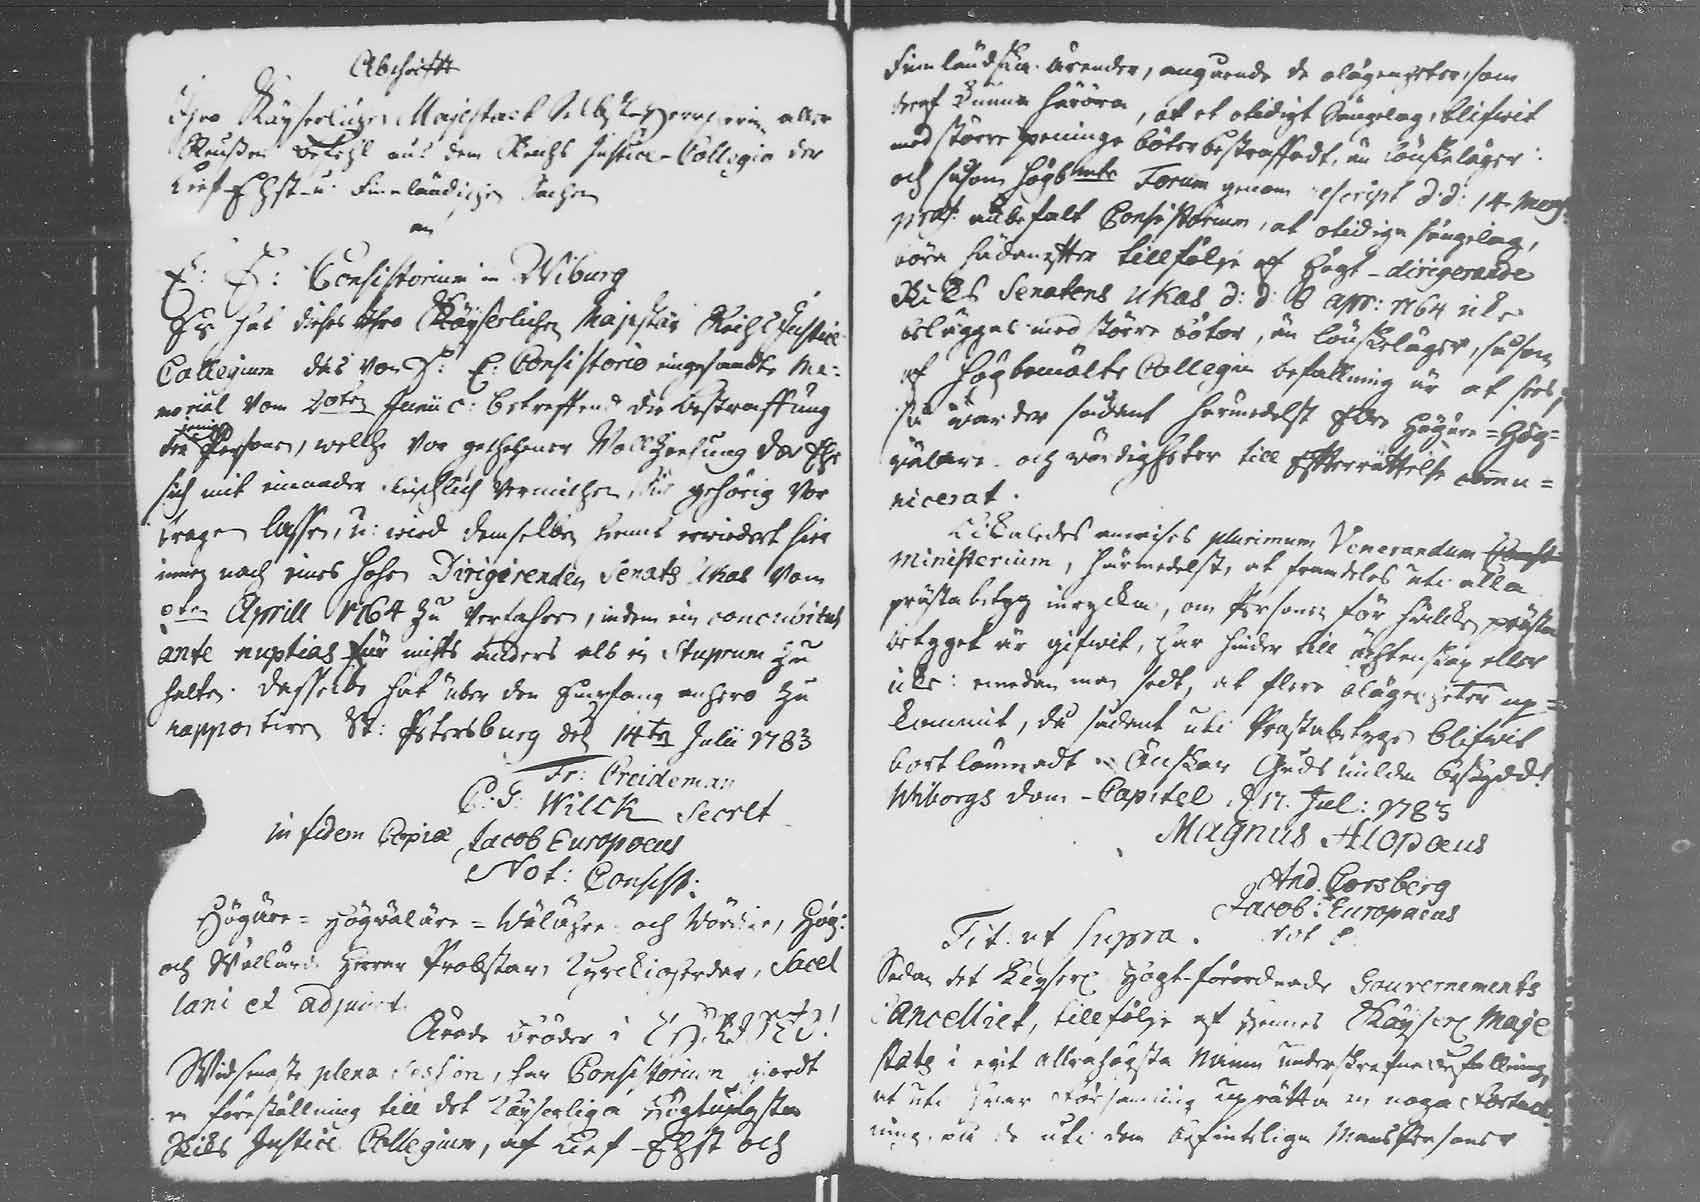 Abschrifft
Ihro Kayserlichen Majestaet Selbstherrscherin aller
Reußen Befehl aus dem Reichs Justice-Collegio der
Lief- Ehst- u: Finnländischen Sachen
an
E: E: Consistorium in Wiburg
Es hat dieses Ihro Kayserlichen Majestät Reichs Justice
Collegium das von E: E: Consistorio eingesandte Me=
morial vom 20ten Junii c: betreffend die Bestraffung
derjenigen Persohnen, welche vor geschehener Vollziehung der Ehe
sich mit einander fleischlich vermischen, sich gehörig vor
tragen lassen, u: wird demselben hiemit erwiedert hier
innen nach eines hohen Dirigirenden Senats Ukas vom
Aprill 1764 zu verfahren, indem ein concubitus
ante nuptias für nichts anders als ein Stuprum zu
halten. Dasselbe hat über den Empfang anhero zu
rapportiren St: Petersburg den 14ten Julii 1783
Fr: Creideman
C: G: Wilck Secret
in fidem Copiæ Jacob Europoeus
Not: Consist:
Högäre= Högwäläre= Wälähre och Wördige, Hög:
och Wällärde Herrar Probstar, Kyrckioherdar, Sacel
lani et adjuncti
Ärade Bröder i CHRISTO!
Widsenaste plena Session, har Consistorium giordt
en föreställning till det Kayserliga Högtuplysta
Riks Justice Collegium, af Lief- Ehst och
Finnländska ärender, angående de olägenheter, som
deraf kunna härröra, at et otidigt sängelag, blifwit
med större penninge böter bestraffadt, än lönskeläger:
och såsom högbmte Forum genom rescript d: d: 14 Mens:
præs: anbefalt Consistorium, at otidiga sängelag,
böra hädanefter tillfölje af Högt-dirigerande
Riks Senatens Ukas d: d: Apr: 1764 icke
beläggas med större böter, än lönskeläger, såsom
af högbemälte Collegii befallning är at sees,
så warder sådant härmedelst Eder Högäre= Hög=
wäläre och wördigheter till efterrättelse commu=
nicerat.
Likaledes anwises plurimum Venerandum
Ministerium, härmedelst, at framdeles uti alla
prästabetyg inrycka, om Personen för hwilken prästa
betyget är gifwit, har hinder till ächtenskap eller
icke: emedan man sedt, at flere olägenheter up=
kommit, då sådant uti Prästabetygen blifwit
bortlämnadt. Önskar Guds milda beskydd!
Wiborgs Dom-Capitel d. 17. Jul: 1783
Magnus Alopæus
And. Corsberg
Jacob: Europaeus
Not C.
Tit. ut supra.
Sedan det Keyserl Högt-förordnade Gouvernements
Cancelliet, tillfölje af Hennes Kayserl Maje
stäts i egit allrahögsta Namn underskrefne befallning,
at uti hwar Församling uprätta en noga förteck
ning, på de uti dem befinteliga Manspersoner